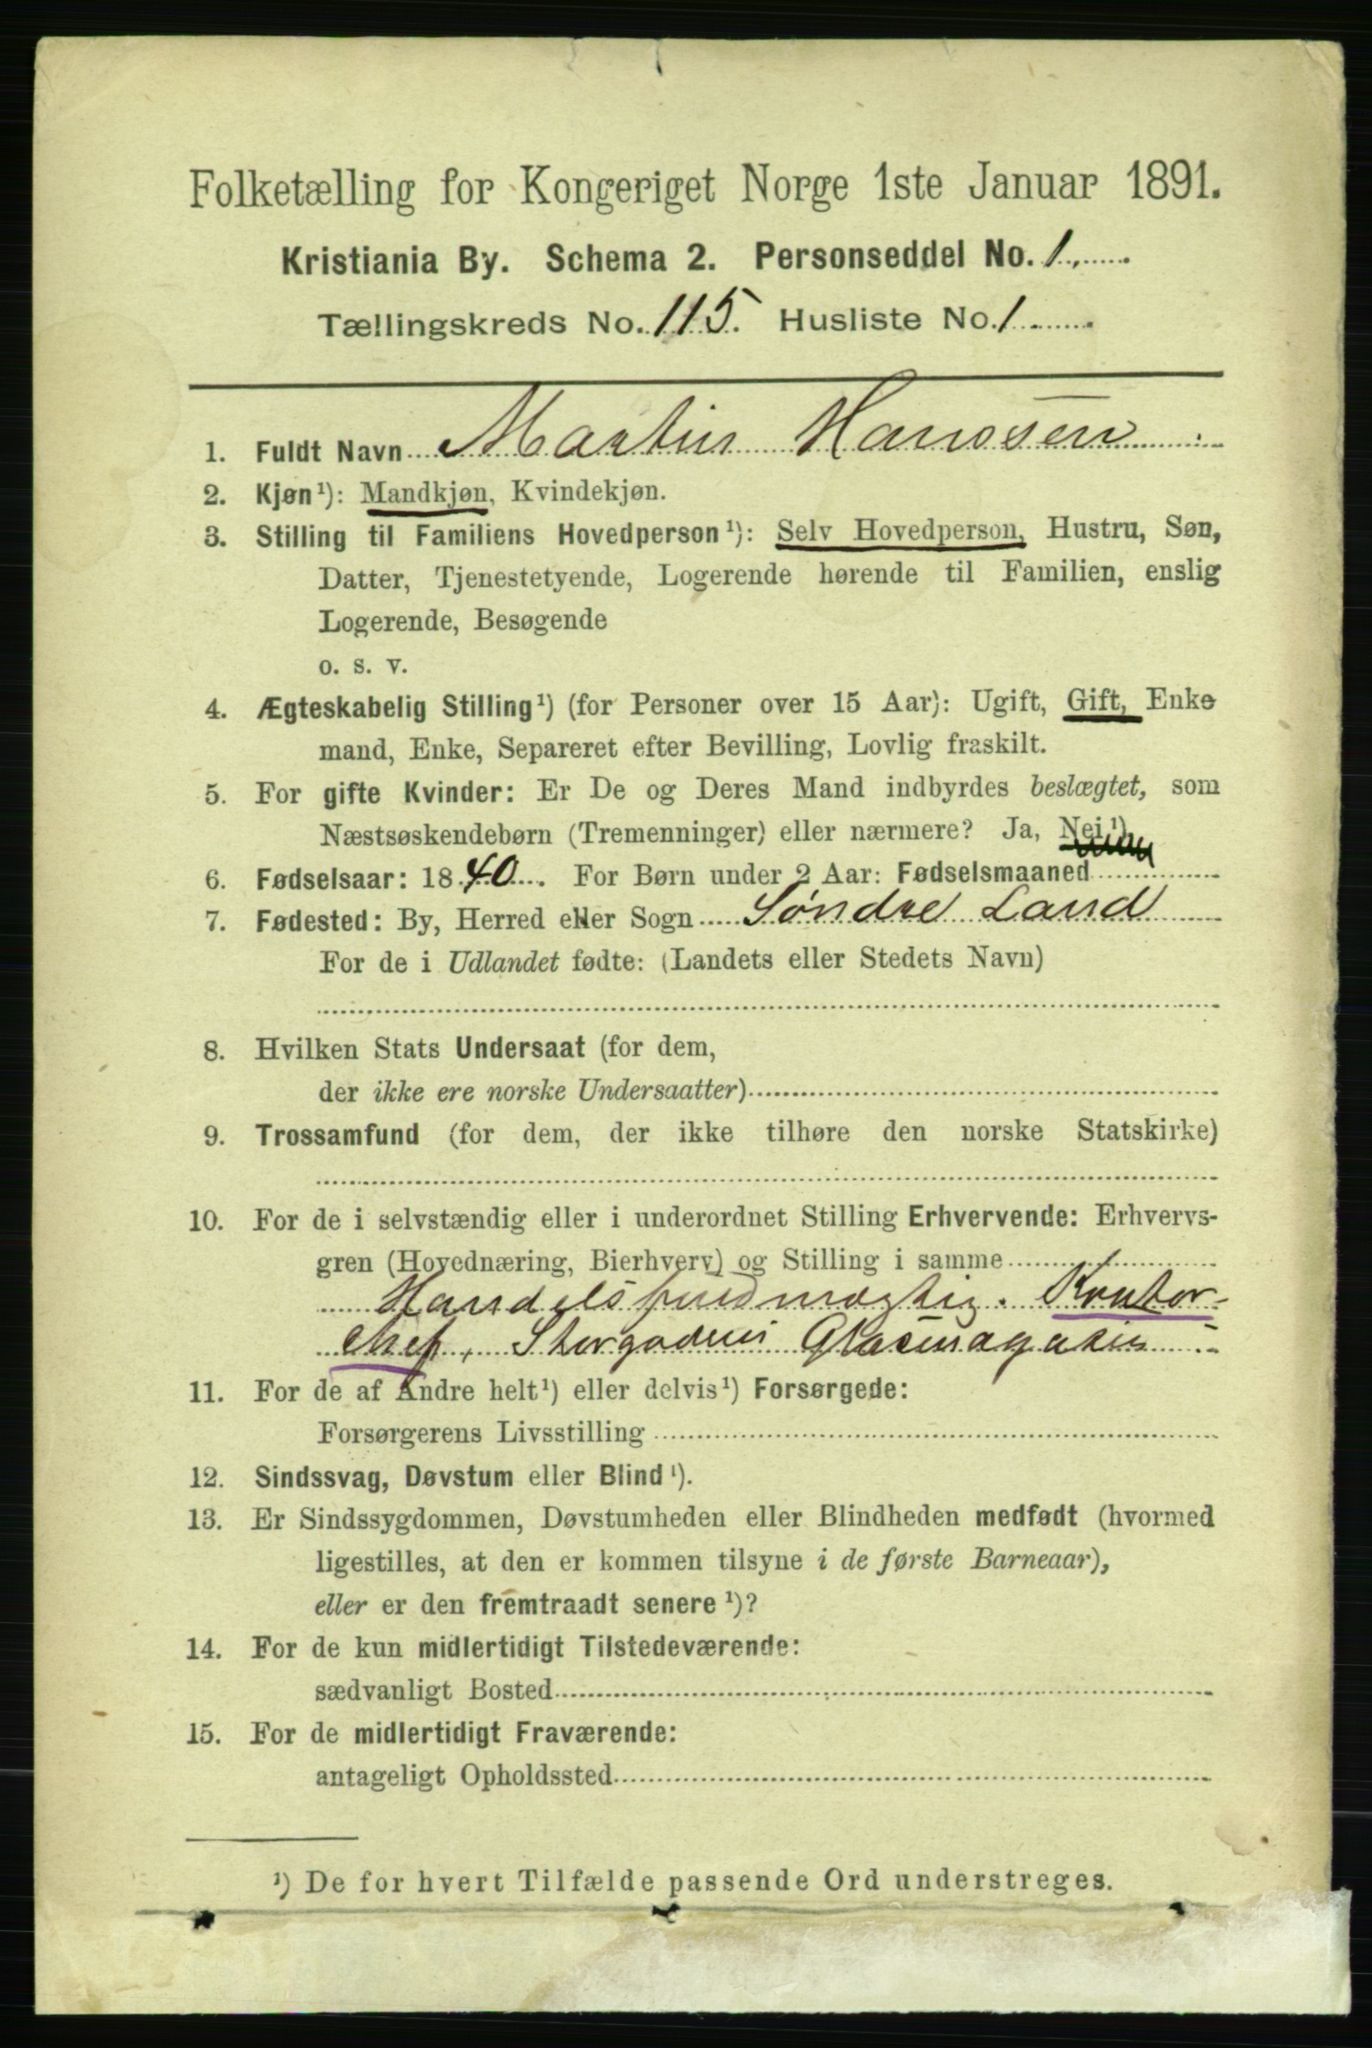 Folketælling for Kongeriget Norge 1ste Januar 1891.
Kristiania By. Schema 2. Personseddel No. 1.
Tællingskreds No. 115. Husliste No. 1
1. Fuldt Navn Martin Hanssen
2. Kjøn¹): Mandkjøn, Kvindekjøn.
3. Stilling til Familiens Hovedperson¹): Selv Hovedperson, Hustru, Søn,
Datter, Tjenestetyende, Logerende hørende til Familien, enslig
Logerende, Besøgende
o. s. v.
4. Ægteskabelig Stilling¹) (for Personer over 15 Aar): Ugift, Gift, Enke
mand, Enke, Separeret efter Bevilling, Lovlig fraskilt.
5. For gifte Kvinder: Er De og Deres Mand indbyrdes beslægtet, som
Næstsøskendebørn (Tremenninger) eller nærmere? Ja, Nei¹)
6. Fødselsaar: 1840. For Børn under 2 Aar: Fødselsmaaned
7. Fødested: By, Herred eller Sogn Søndre Land
For de i Udlandet fødte: (Landets eller Stedets Navn)
8. Hvilken Stats Undersaat (for dem,
der ikke ere norske Undersaatter)
9. Trossamfund (for dem, der ikke tilhøre den norske Statskirke)
10. For de i selvstændig eller i underordnet Stilling Erhvervende: Erhvervs-
gren (Hovednæring, Bierhverv) og Stilling i samme
Handelsfuldmægtig. Kontor-
chef, Storgadens Glasmagasin
11. For de af Andre helt¹) eller delvis¹) Forsørgede:
Forsørgerens Livsstilling
12. Sindssvag, Døvstum eller Blind¹).
13. Er Sindssygdommen, Døvstumheden eller Blindheden medfødt (hvormed
ligestilles, at den er kommen tilsyne i de første Barneaar),
eller er den fremtraadt senere¹)?
14. For de kun midlertidigt Tilstedeværende:
sædvanligt Bosted
15. For de midlertidigt Fraværende:
antageligt Opholdssted
¹) De for hvert Tilfælde passende Ord understreges.